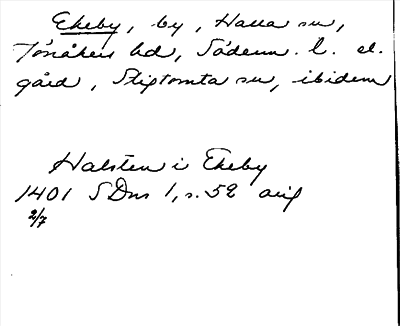 Ekeby, by, Halla sn,
Jönåkers hd, Söderm. l. el.
gård, Stigtomta sn, ibidem
Halsten i Ekeby
1401 SDns 1, s. 52 orig
2/7